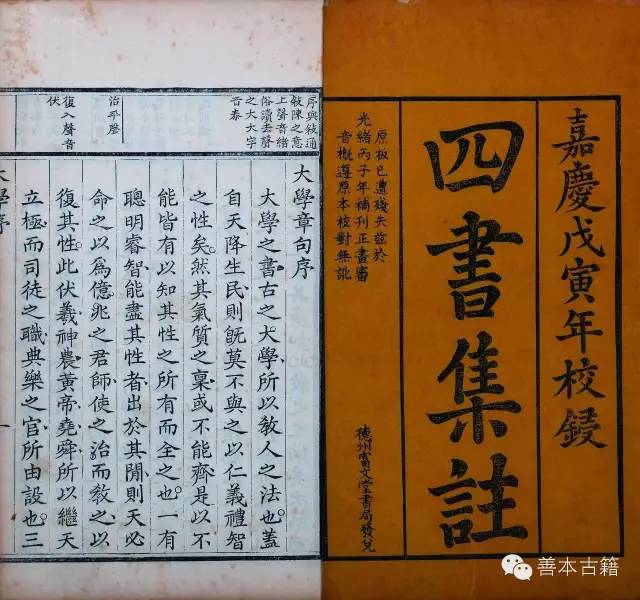 嘉慶戊寅年校鋟
四書集註
原板已遭殘失茲於
光緒丙子年補刊正畫審
音概遵原本校對無訛
德州富文堂書局發兌
序與敍通
敍陳之意
上聲音緒
俗讀去聲
之大大字
音泰
治平聲
復入聲音
伏
大學章句序
大學之書古之大學所以教人之法也蓋
自天降生民則既莫不與之以仁義禮智
之性矣然其氣質之稟或不能齊是以不
能皆有以知其性之所有而全之也一有
聰明睿智能盡其性者出於其閒則天必
命之以爲億兆之君師使之治而教之以
復其性此伏羲神農黃帝堯舜所以繼天
立極而司徒之職典樂之官所由設也三
大學序
一
善本古籍